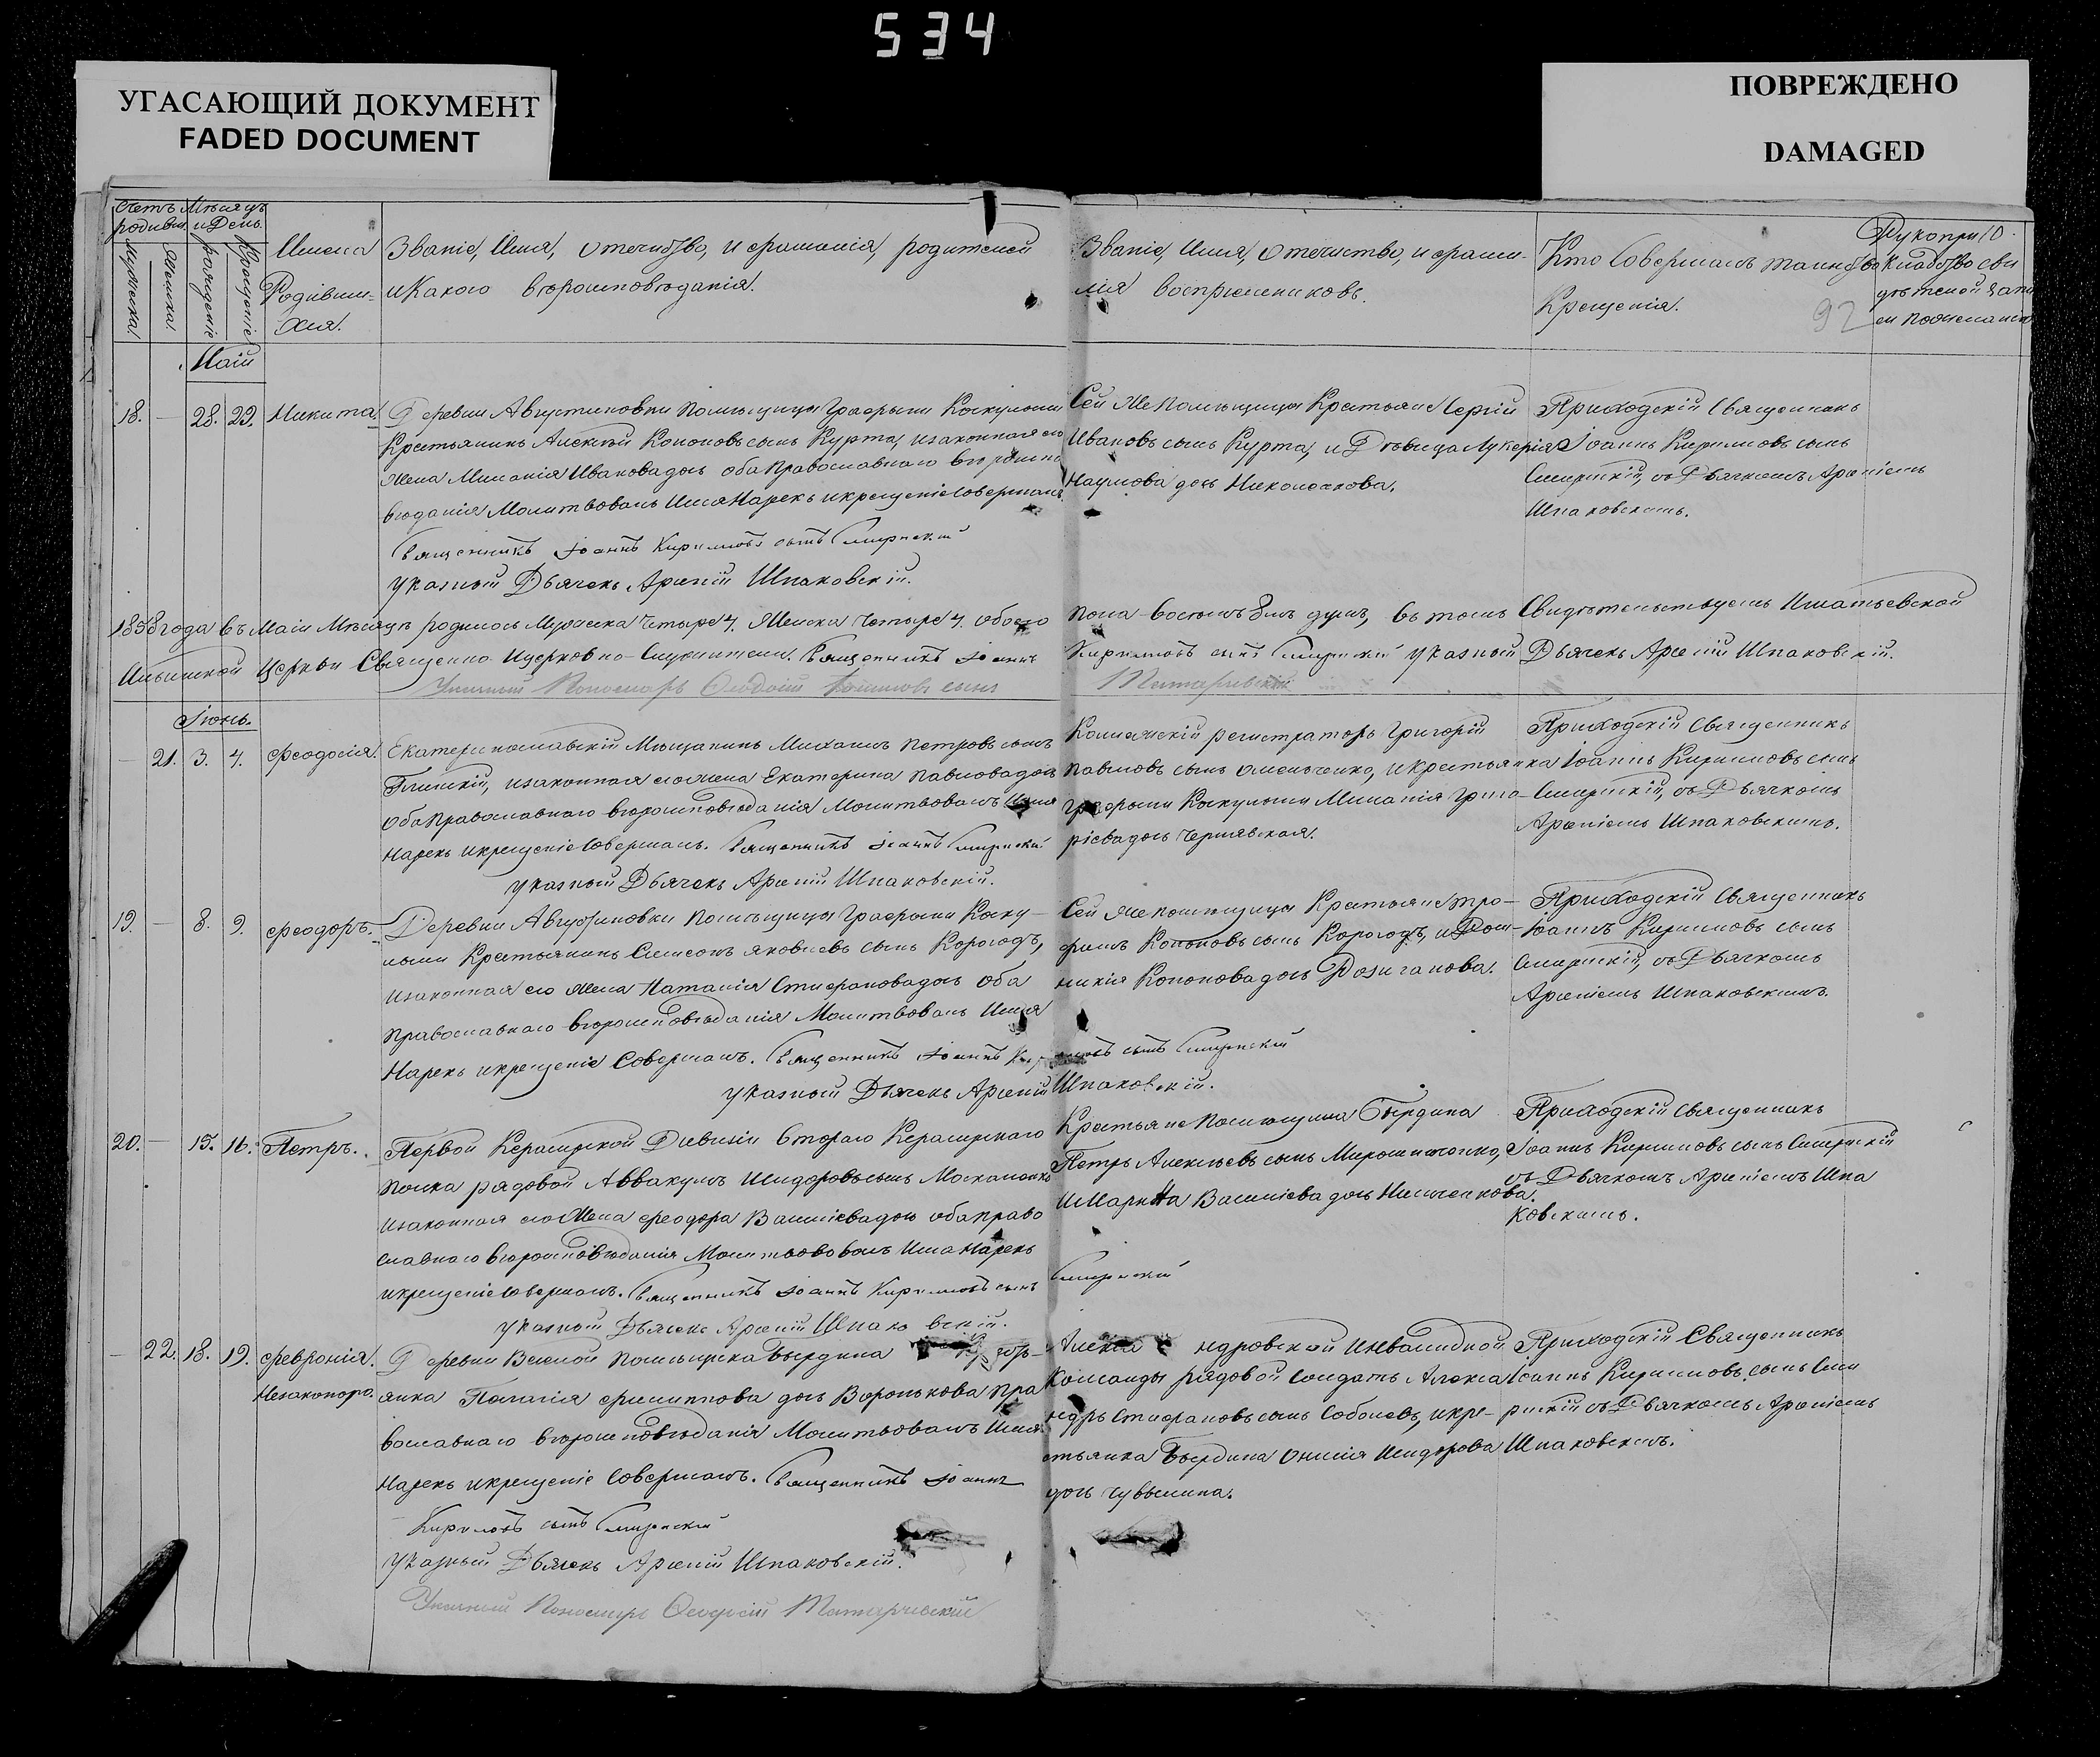 534
УГАСАЮЩИЙ ДОКУМЕНТ
FADED DOCUMENT
ПОВРЕЖДЕНО
DAMAGED
Счетъ родивш.
Мужеска.
Женска.
Мѣсяцъ и День.
рожденіе
Крещеніе
Имена
Родивши-
хся.
Званіе, Имя, Отечество, и фамилія, родителей
и Какого вѣроисповѣданія.
Званіе, Имя, Отечество, и фами-
лія воспріемниковъ.
Кто Совершалъ таинство
Крещенія.
92
Рукопри
кладство сви
дѣтелей запи
си по желанію
Маій
18. — 28. 29. Никита
Деревни Августиновки помѣщицы Графини
Крестьянинъ Алексѣй Кононовъ сынъ Курта, и законная его
Жена Миланія Иванова дочь оба Православнаго вѣроиспо
вѣданія Молитвовалъ Имя Нарекъ и крещеніе Совершалъ
Священникъ Іоаннъ Кириловъ сынъ
указной Дьячекъ Арсеній Шпаковскій.
Сей Же Помѣщицы Крестьяне Сергій
Ивановъ сынъ Курта, и Дѣвица Лукерія
Наумова дочь
Приходскій Священникъ
Іоаннъ Кириловъ сынъ
съ Дьячкомъ Арсеніемъ
Шпаковскимъ.
1858 года въ Маіи Мѣсяцѣ родилось Мужеска Четыре 4. Женска Четыре 4. обоего
пола восемь душъ, въ томъ Свидѣтельствуемъ Игнатьевской
Ильинской Церкви Священно-Церковно-Служители. Священникъ Іоаннъ
Кириловъ сынъ указной Дьячекъ Арсеній Шпаковскій.
Указный Пономарь Ѳеодосій сынъ
Іюнь.
— 21. 3. 4. Феодосія.
Екатеринославскій Мѣщанинъ Михаилъ Петровъ сынъ
и законная его жена Екатерина Павлова дочь
оба Православнаго вѣроисповѣданія Молитвовалъ Имя
Нарекъ и крещеніе Совершалъ. Священникъ Іоаннъ
указной Дьячекъ Арсеній Шпаковскій.
Коллежскій регистраторъ Григорій
Павловъ сынъ Омельченко, и крестьянка
Графини Миланія Григо-
ріева дочь Чернявская.
Приходскій Священникъ
Іоаннъ Кириловъ сынъ
съ Дьячкомъ
Арсеніемъ Шпаковскимъ.
19. — 8. 9. Феодоръ.
Деревни Августиновки помѣщицы Графини
Крестьянинъ Симеонъ Яковлевъ сынъ Корогодъ,
и законная его Жена Наталія Стифанова дочь оба
Православнаго вѣроисповѣданія Молитвовалъ Имя
Нарекъ и крещеніе Совершалъ. Священникъ Іоаннъ
указной Дьячекъ Арсеній Шпаковскій.
Сей же помѣщицы Крестьяне Тро-
фимъ Кононовъ сынъ Корогодъ, и Дом-
никія Кононова дочь
Приходскій Священникъ
Іоаннъ Кириловъ сынъ
съ Дьячкомъ
Арсеніемъ Шпаковскимъ.
20. — 15. 16. Петръ.
Первой Керасирской Дивизіи Втораго Керасирскаго
Полка рядовой Аввакумъ Исидоровъ сынъ
и законная его Жена Феодора Василіева дочь оба право
славнаго вѣроисповѣданія Молитвовалъ Имя Нарекъ
и крещеніе совершалъ. Священникъ Іоаннъ Кириловъ сынъ
указной Дьячекъ Арсеній Шпаковскій.
Крестьяне помѣщика Бырдина
Петръ Алексѣевъ сынъ Мирошниченко,
и Марина Василіева дочь
Приходскій Священникъ
Іоаннъ Кириловъ сынъ
съ Дьячкомъ Арсеніемъ Шпа
ковскимъ.
— 22. 18. 19. Февронія.
Незаконор.
Деревни Веселой помѣщика Бырдина
янка Пелагія Филиппова дочь Воронькова Пра
вославнаго вѣроисповѣданія Молитвовалъ Имя
Нарекъ и крещеніе Совершалъ. Священникъ Іоаннъ
Кириловъ сынъ
указный Дьячекъ Арсеній Шпаковскій.
Указный Пономарь Ѳеодосій
Алекса ндровской Инвалидной
Команды рядовой Солдатъ Алекса
ндръ Стифановъ сынъ Соболевъ, и кре-
стьянка Бырдина Онисія Исидорова
дочь
Приходскій Священникъ
Іоаннъ Кириловъ сынъ
съ Дьячкомъ Арсеніемъ
Шпаковскимъ.